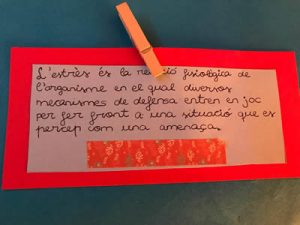 L'estrès és la reacció fisiològica de
l'organisme en el qual diversos
mecanismes de defensa entren en joc
per fer front a una situació que es
percep com una amenaça.